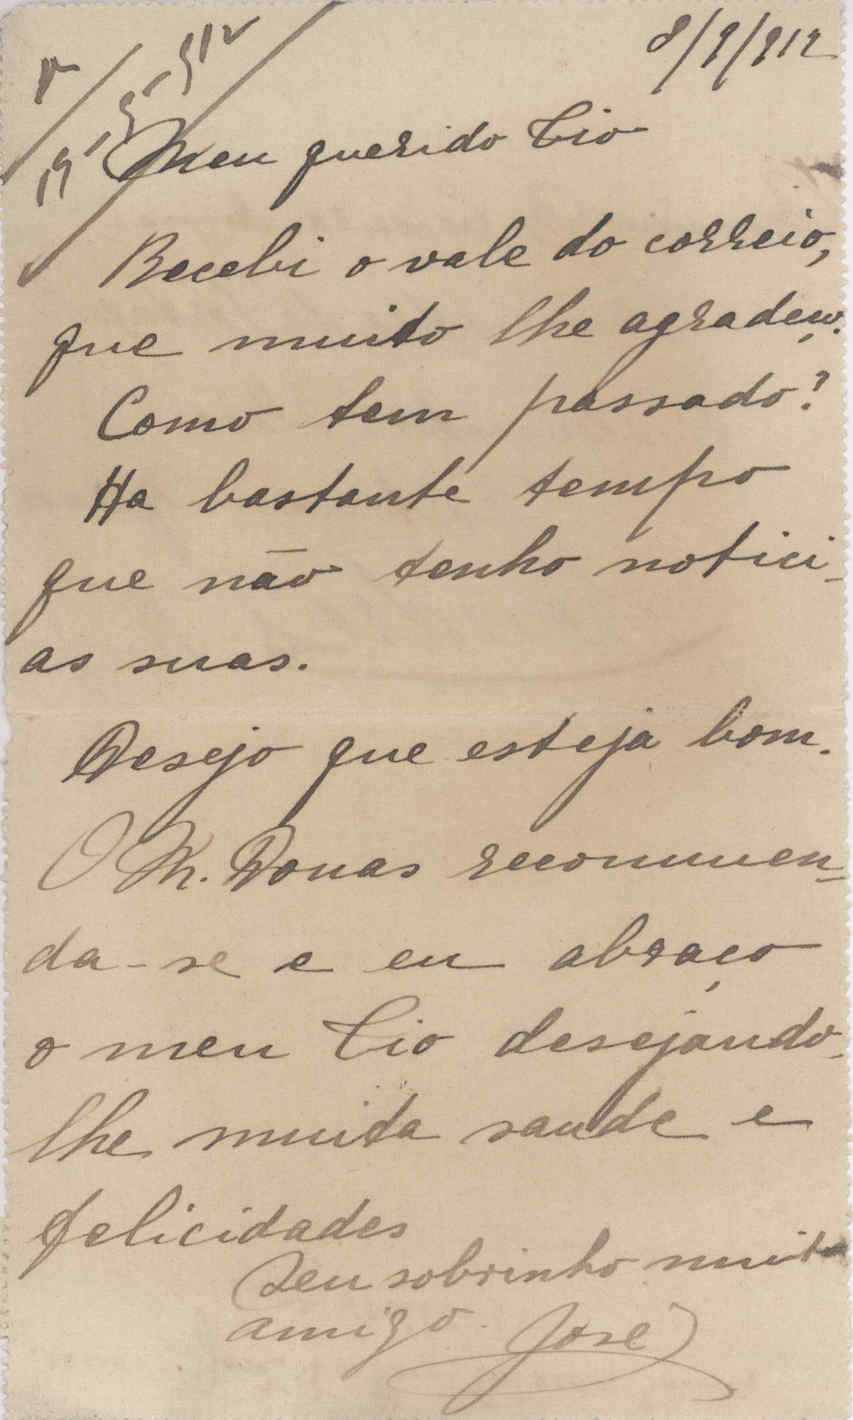 8/9/912
19-9-912
Meu querido Tio
Recebi o vale do correio,
que muito lhe agradeço.
Como tem passado?
Ha bastante tempo
que não tenho notici-
as suas.
Desejo que esteja bom.
O M. Donas recommen-
da-se e eu abraço
o meu Tio desejando-
lhe muita saude e
felicidades
Seu sobrinho muito
amigo José